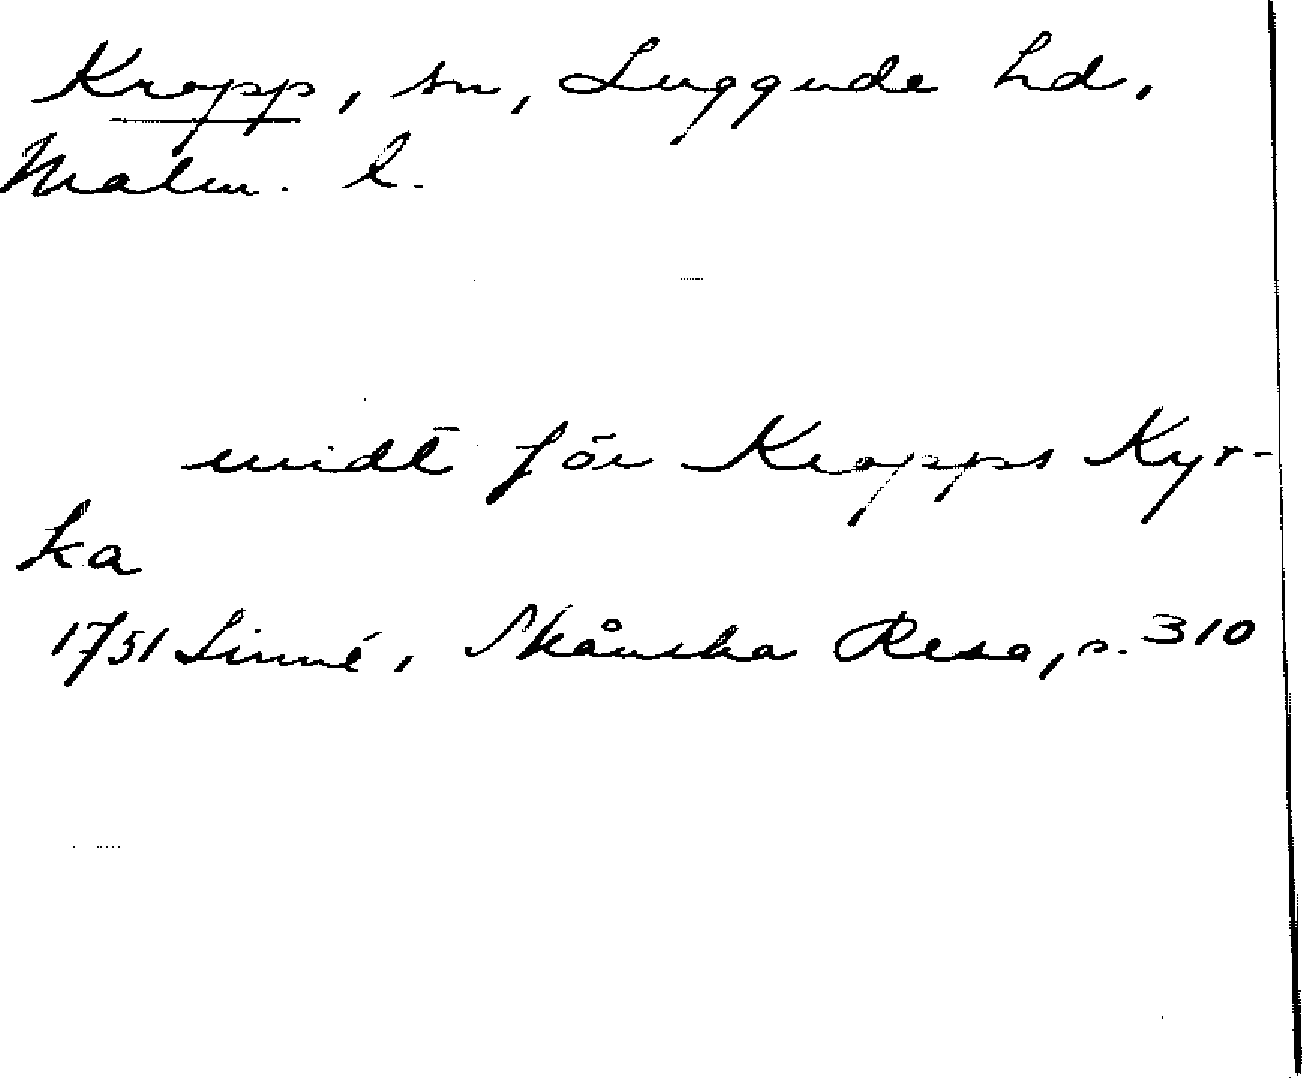 Kropp, sn, Luggude hd,
Malm. l.
midt för Kropps Kyr-
ka
1751 Linné, Skånska Resa, s. 310